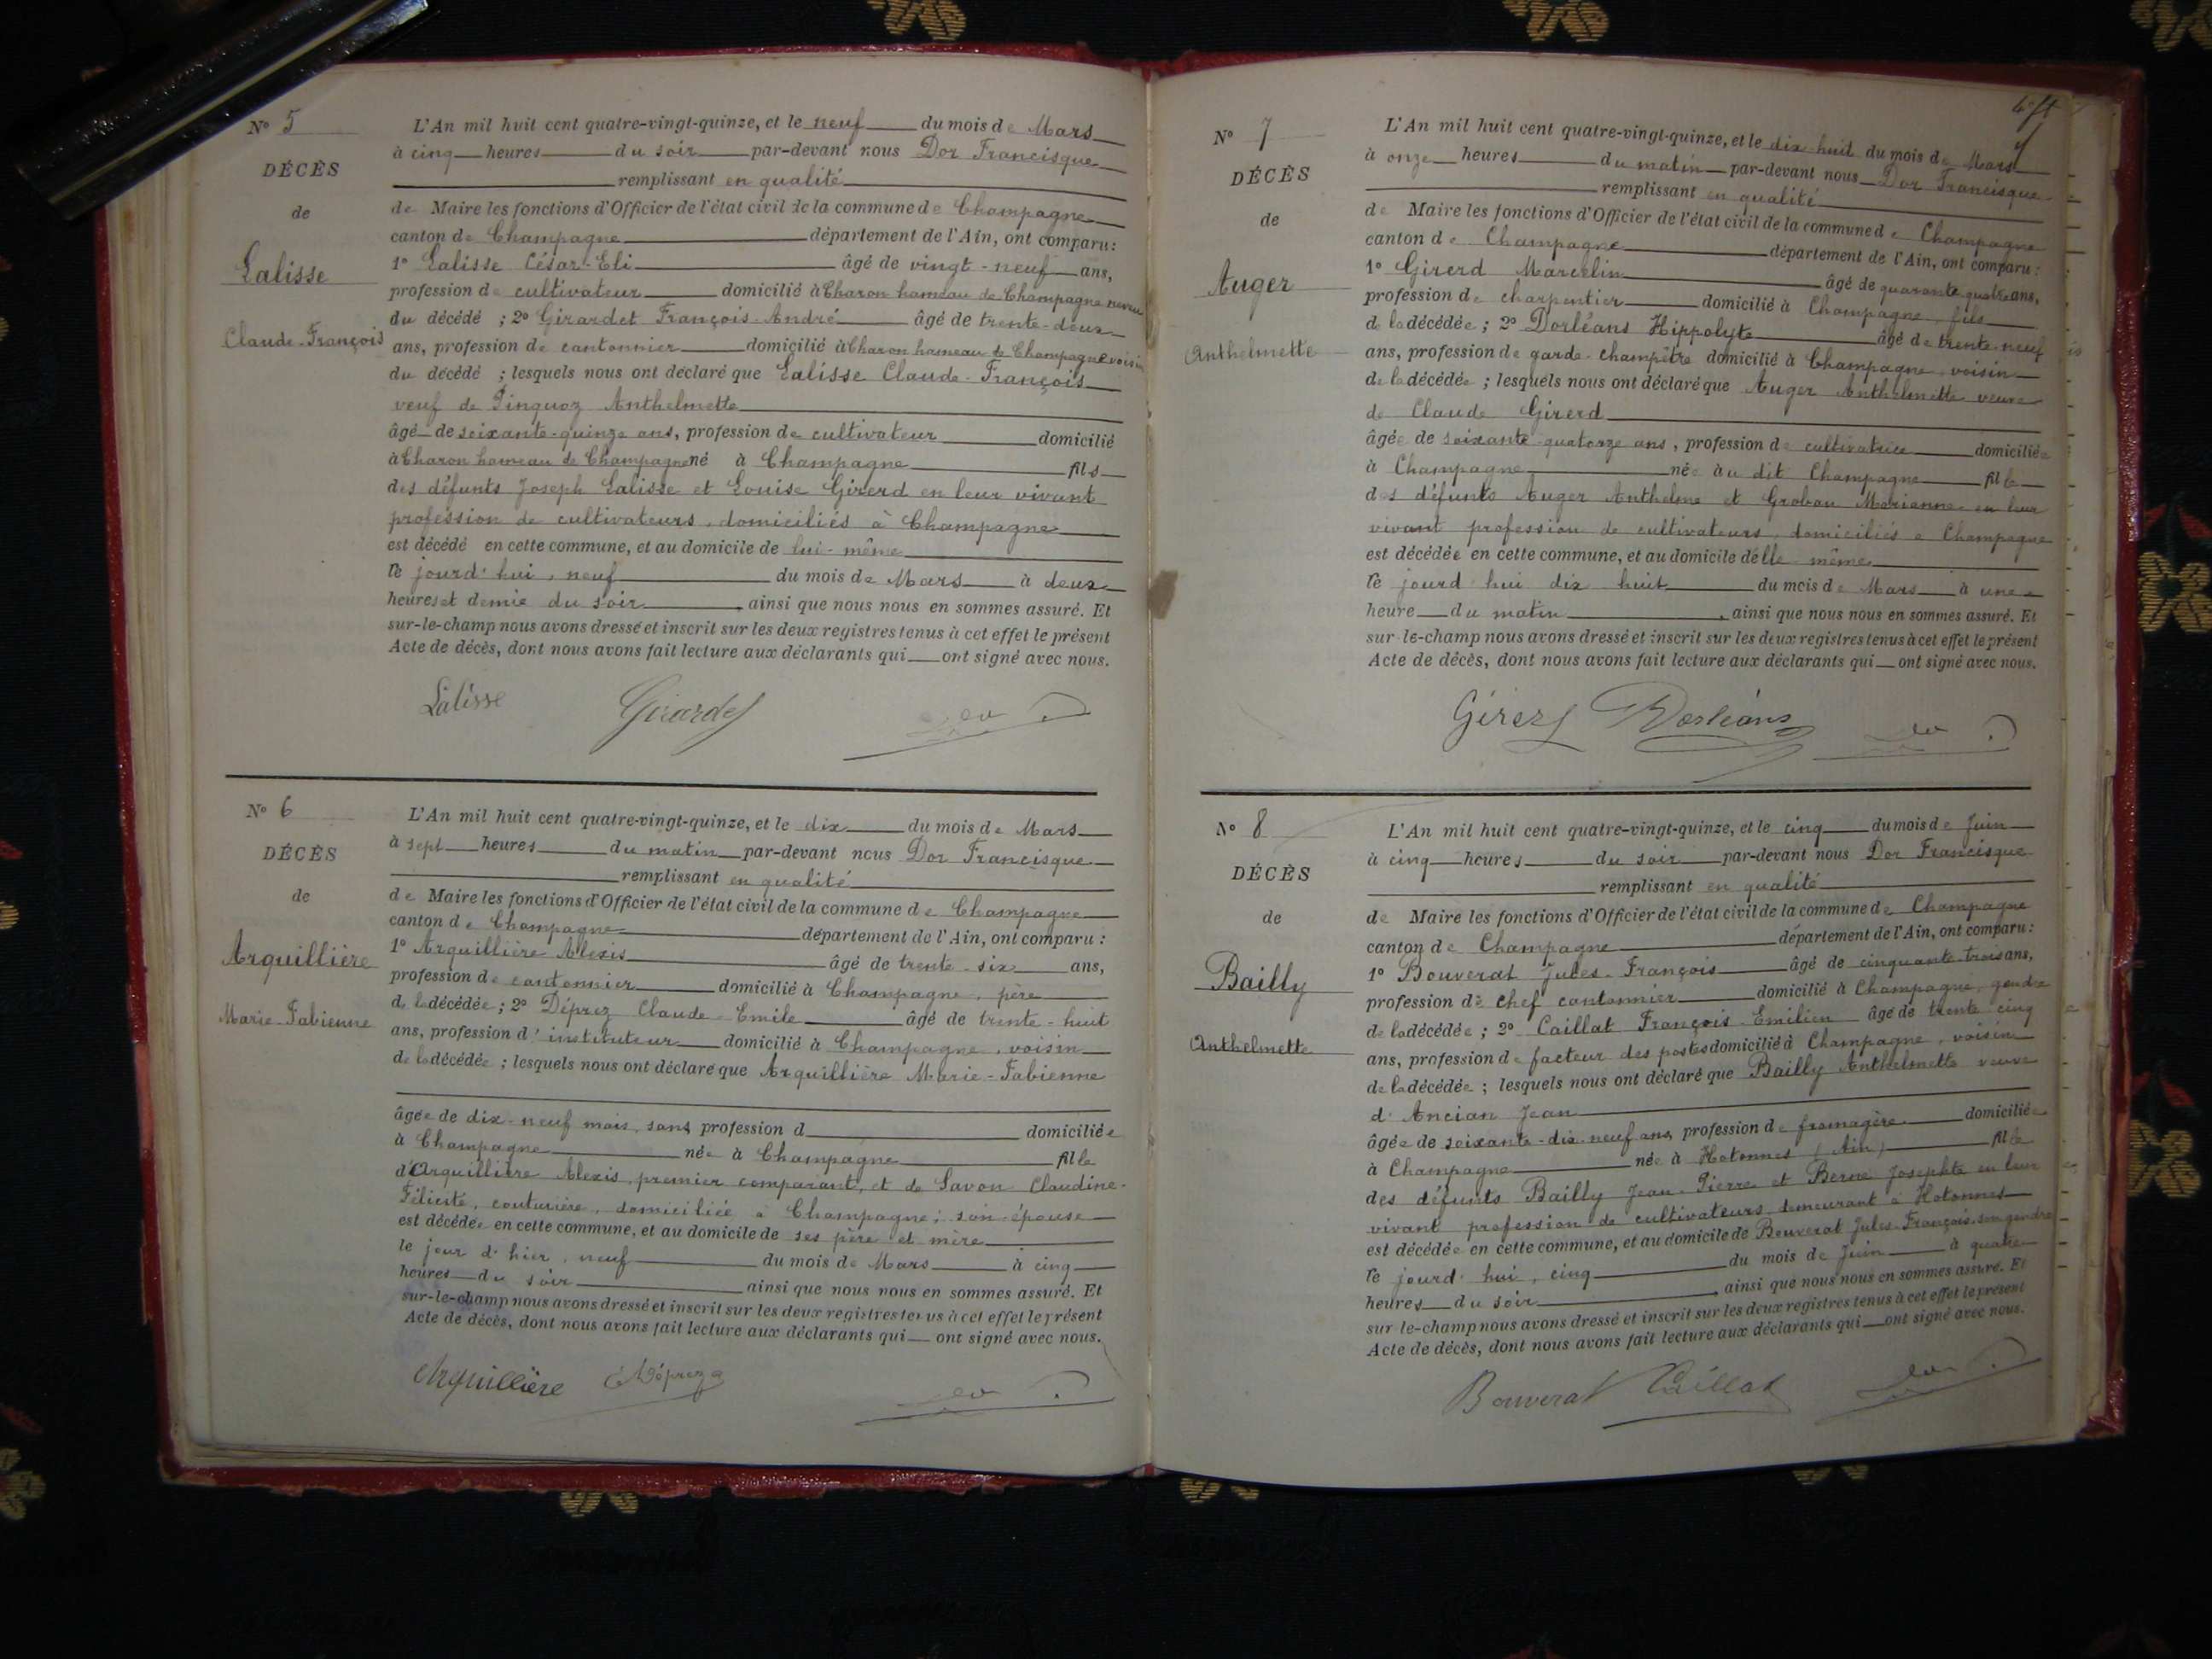 N° 5
DÉCÈS
de
Lalisse
Claude-François
L'An mil huit cent quatre-vingt-quinze, et le neuf du mois de Mars
à cinq heures du soir par-devant nous Dor Francisque
remplissant en qualité
de Maire les fonctions d'Officier de l'état civil de la commune de Champagne
canton de Champagne département de l'Ain, ont comparu :
1° Lalisse César-Eli âgé de vingt-neuf ans,
profession de cultivateur domicilié à Charon hameau de Champagne neveu
du décédé ; 2° Girardet François-André âgé de trente-deux
ans, profession de cantonnier domicilié à Charon hameau de Champagne voisin
du décédé ; lesquels nous ont déclaré que Lalisse Claude-François
veuf de Pinquoz Anthelmette
âgé de soixante-quinze ans, profession de cultivateur domicilié
à Charon hameau de Champagne né à Champagne fils
des défunts Joseph Lalisse et Louise Girerd en leur vivant
profession de cultivateurs, domiciliés à Champagne
est décédé en cette commune, et au domicile de lui-même
le jourd'hui, neuf du mois de Mars à deux
heures et demie du soir, ainsi que nous nous en sommes assuré. Et
sur-le-champ nous avons dressé et inscrit sur les deux registres tenus à cet effet le présent
Acte de décès, dont nous avons fait lecture aux déclarants qui ont signé avec nous.
Lalisse Girardet
N° 6
DÉCÈS
de
Arquillière
Marie-Fabienne
L'An mil huit cent quatre-vingt-quinze, et le dix du mois de Mars
à sept heures du matin par-devant nous Dor Francisque
remplissant en qualité
de Maire les fonctions d'Officier de l'état civil de la commune de Champagne
canton de Champagne département de l'Ain, ont comparu :
1° Arquillière Alexis âgé de trente-six ans,
profession de cantonnier domicilié à Champagne, père
de la décédée ; 2° Déprez Claude-Emile âgé de trente-huit
ans, profession d'instituteur domicilié à Champagne, voisin
de la décédée ; lesquels nous ont déclaré que Arquillière Marie-Fabienne
âgée de dix-neuf mois, sans profession d domiciliée
à Champagne née à Champagne fille
d'Arquillière Alexis, premier comparant, et de Savon Claudine-
Félicité, couturière, domiciliée à Champagne ; son épouse
est décédée en cette commune, et au domicile de ses père et mère
le jour d'hier, neuf du mois de Mars à cinq
heures du soir ainsi que nous nous en sommes assuré. Et
sur-le-champ nous avons dressé et inscrit sur les deux registres tenus à cet effet le présent
Acte de décès, dont nous avons fait lecture aux déclarants qui ont signé avec nous.
Arquillière Déprez
N° 7
DÉCÈS
de
Auger
Anthelmette
L'An mil huit cent quatre-vingt-quinze, et le dix-huit du mois de Mars
à onze heures du matin par-devant nous Dor Francisque
remplissant en qualité
de Maire les fonctions d'Officier de l'état civil de la commune de Champagne
canton de Champagne département de l'Ain, ont comparu :
1° Girerd Marcelin âgé de quarante-quatre ans,
profession de charpentier domicilié à Champagne, fils
de la décédée ; 2° Dorléans Hippolyte âgé de trente-neuf
ans, profession de garde-champêtre domicilié à Champagne, voisin
de la décédée ; lesquels nous ont déclaré que Auger Anthelmette veuve
de Claude Girerd
âgée de soixante-quatorze ans, profession de cultivatrice domiciliée
à Champagne née au dit Champagne fille
des défunts Auger Anthelme et Grobon Marianne en leur
vivant profession de cultivateurs, domiciliés à Champagne
est décédée en cette commune, et au domicile d'elle-même
le jourd'hui dix huit du mois de Mars à une
heure du matin, ainsi que nous nous en sommes assuré. Et
sur-le-champ nous avons dressé et inscrit sur les deux registres tenus à cet effet le présent
Acte de décès, dont nous avons fait lecture aux déclarants qui ont signé avec nous.
Girerd Dorléans
N° 8
DÉCÈS
de
Bailly
Anthelmette
L'An mil huit cent quatre-vingt-quinze, et le cinq du mois de Juin
à cinq heures du soir par-devant nous Dor Francisque
remplissant en qualité
de Maire les fonctions d'Officier de l'état civil de la commune de Champagne
canton de Champagne département de l'Ain, ont comparu :
1° Bouverat Jules-François âgé de cinquante-trois ans,
profession de chef cantonnier domicilié à Champagne, gendre
de la décédée ; 2° Caillat François-Emilien âgé de trente cinq
ans, profession de facteur des postes domicilié à Champagne, voisin
de la décédée ; lesquels nous ont déclaré que Bailly Anthelmette veuve
d'Ancian Jean
âgée de soixante-dix-neuf ans, profession de fromagère domiciliée
à Champagne née à Hotonnes (Ain) fille
des défunts Bailly Jean-Pierre et Berne Josephte en leur
vivant profession de cultivateurs demeurant à Hotonnes
est décédée en cette commune, et au domicile de Bouverat Jules-François, son gendre
le jourd'hui, cinq du mois de Juin à quatre
heures du soir, ainsi que nous nous en sommes assuré. Et
sur-le-champ nous avons dressé et inscrit sur les deux registres tenus à cet effet le présent
Acte de décès, dont nous avons fait lecture aux déclarants qui ont signé avec nous.
Bouverat Caillat